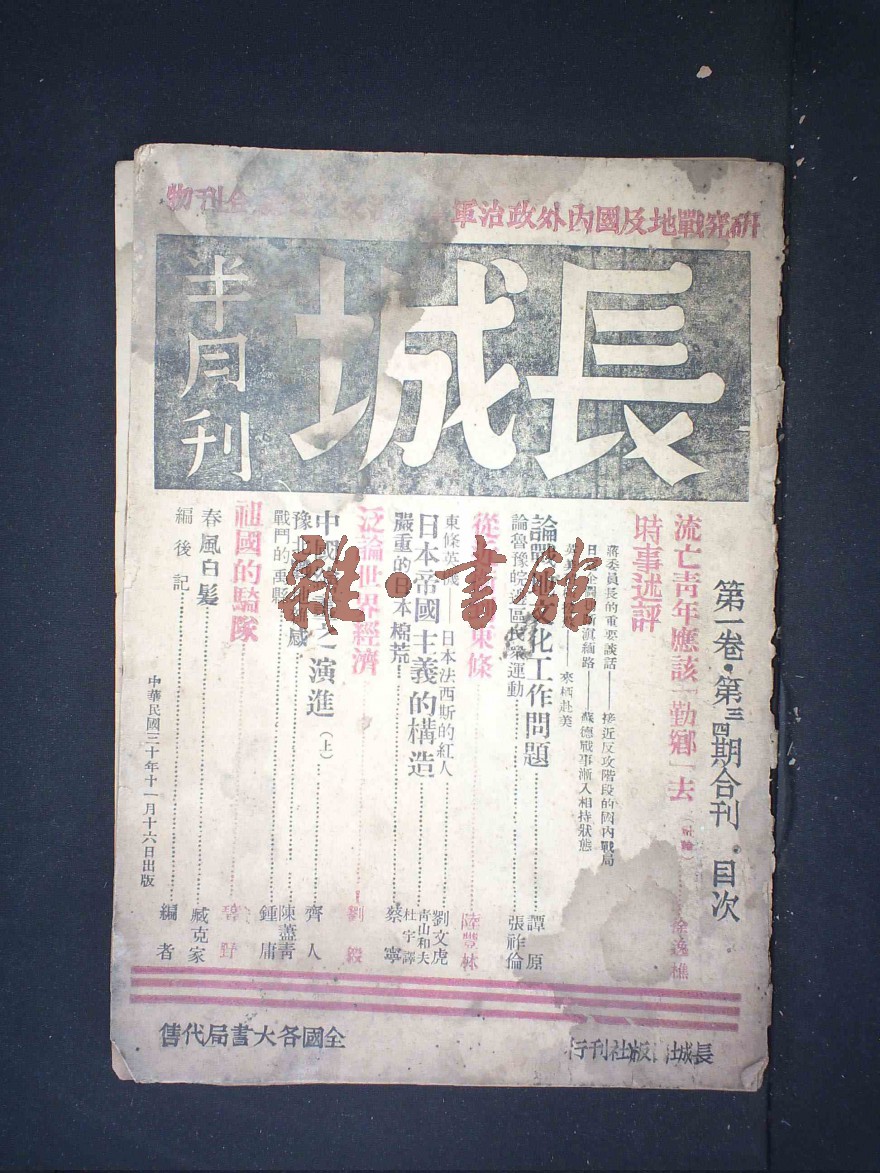 研究戰地及國內外政治軍
刊物
長城
半月刊
第一卷·第三四期合刊·目次
流亡青年應該「勤鄉」去
金逸樵
時事述評
蔣委員長的重要談話——接近反攻階段的國內戰局
滇緬路——蘇德戰事漸入相持狀態
——來栖赴美
論戰地文化工作問題 譚原
論魯豫皖邊區民衆運動 張祚倫
從近衛 東條 陸豐林
東條英機——日本法西斯的紅人 劉文虎
日本帝國主義的構造 青山和夫 杜宇譯
嚴重的日本棉荒 蔡寧
泛論世界經濟 劉毅
中國 之演進(上) 齊人
豫北 感 陳藎青
戰鬥的禹縣 鍾庸
祖國的騎隊 碧野
春風白髮 臧克家
編後記 編者
中華民國三十年十一月十六日出版
長城出版社刊行
全國各大書局代售
雜·書館